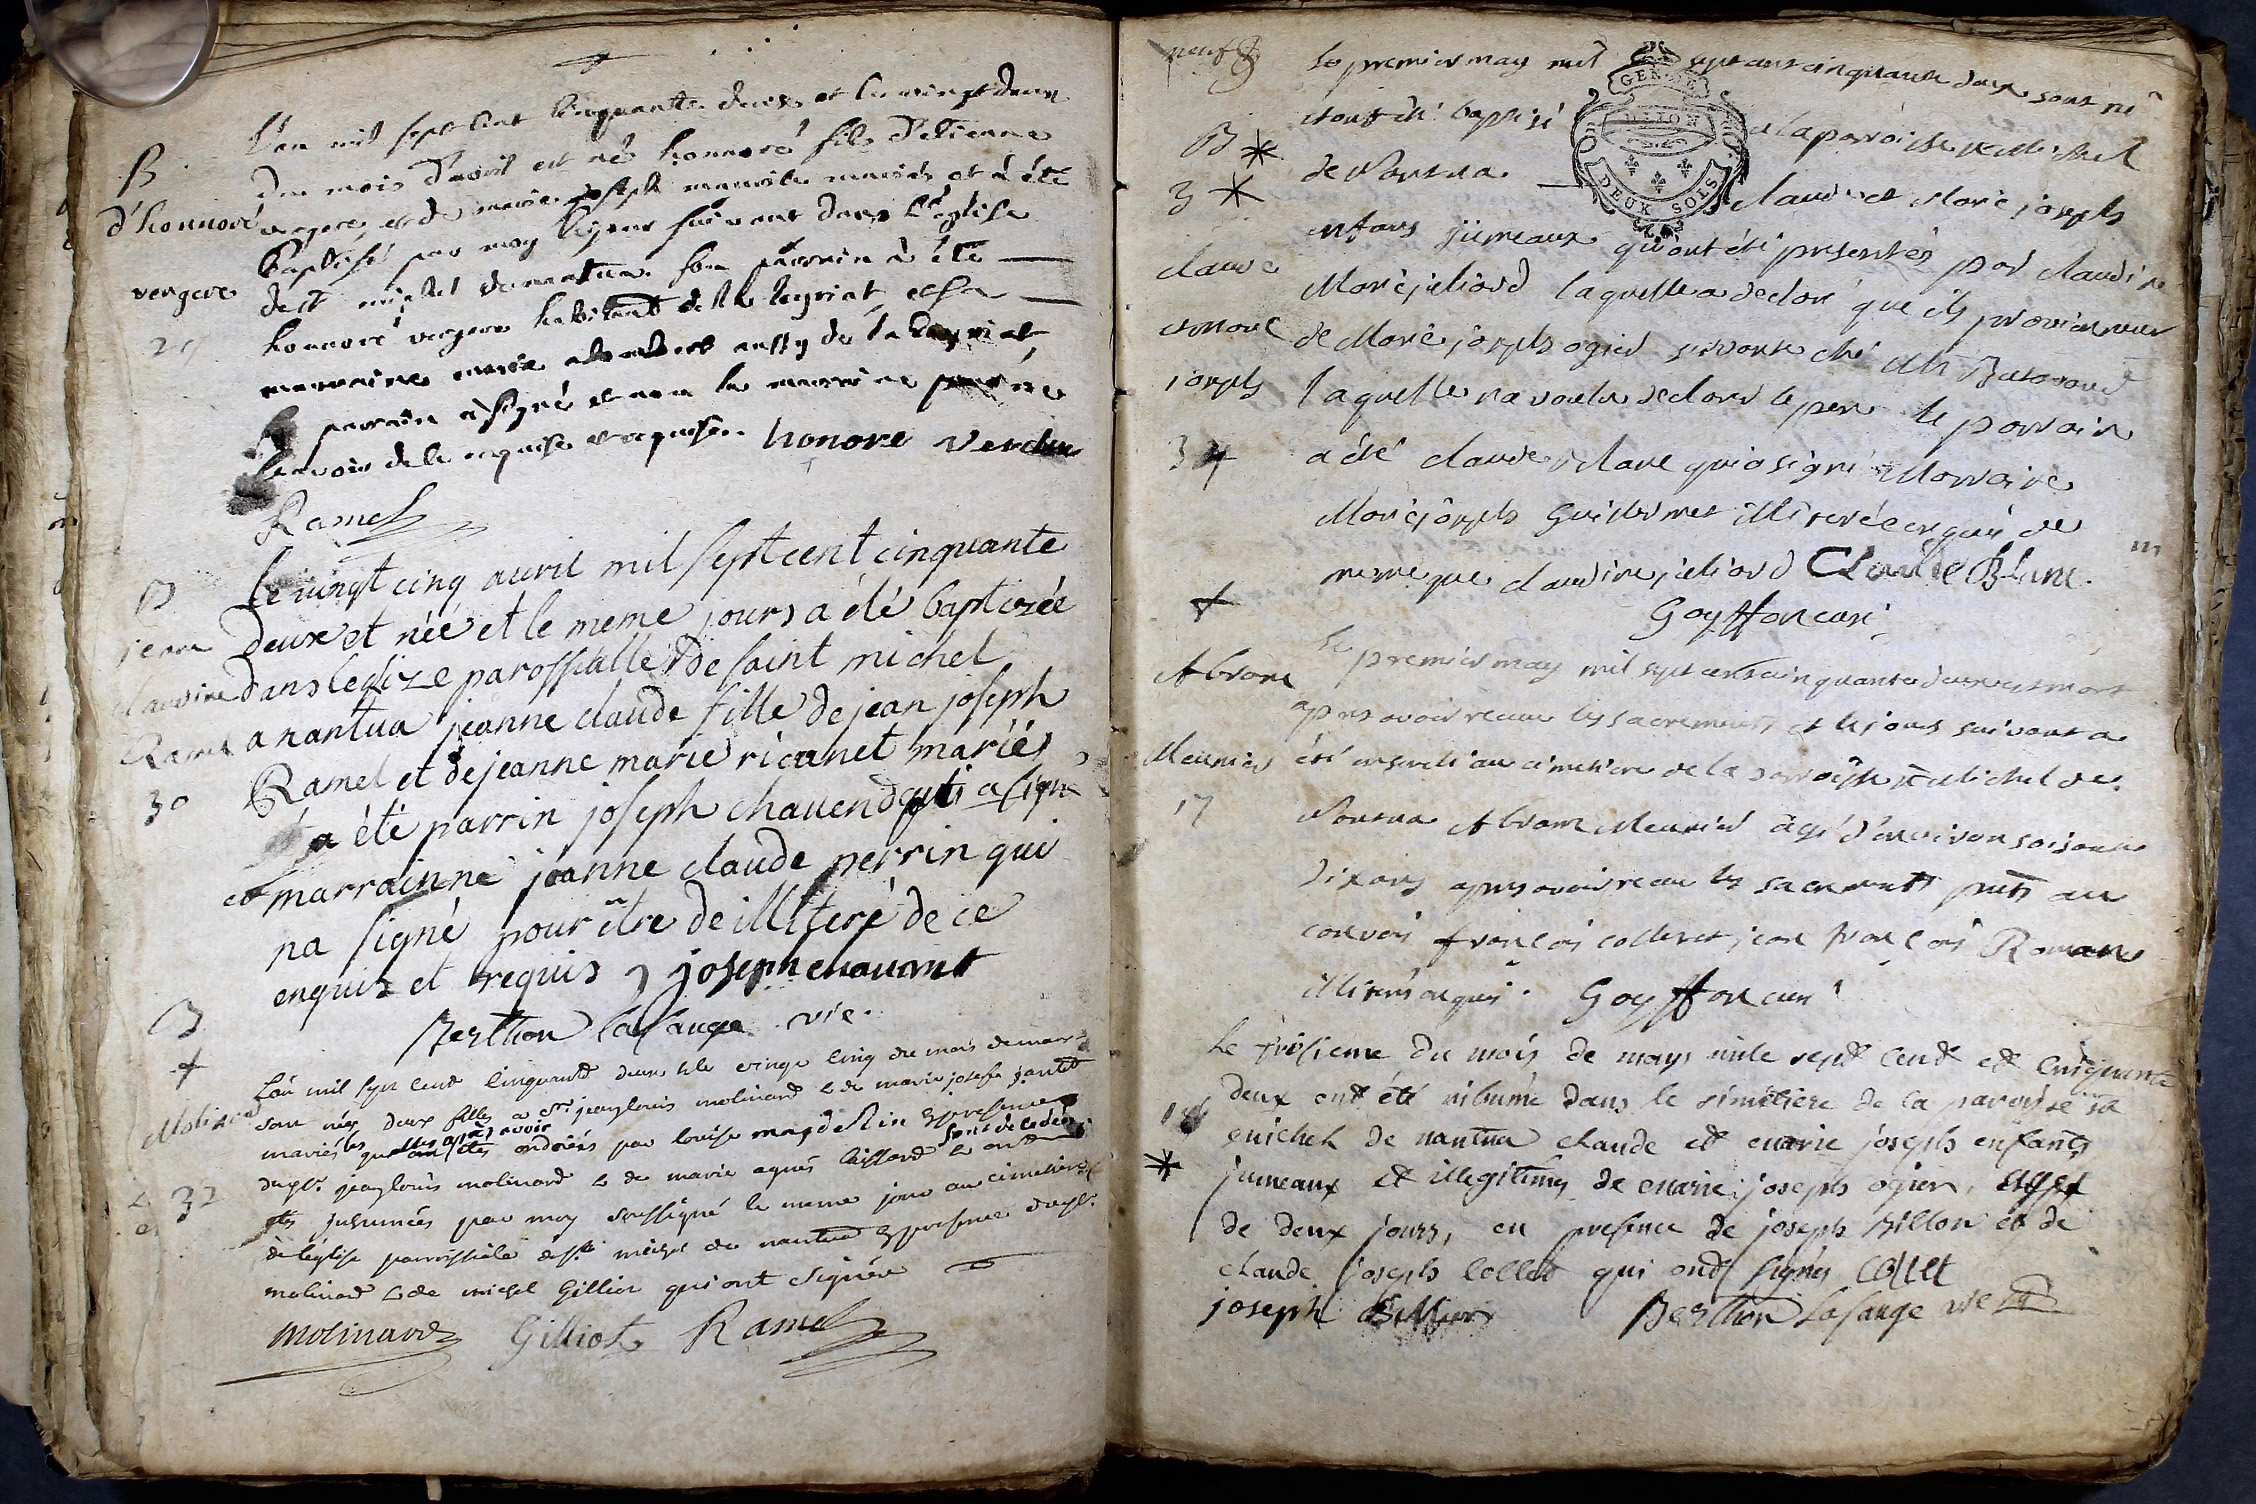 L'an mil sept cent cinquante deux et le vingt deux
du mois d'avril est né honnoré fils d'etienne
vergere et de marie joseph mariés et à été
Baptisé par moy le jour suivant dans l'église
de st michel de nantua son parrain à été
honnoré vergere habitant de leyriat et sa
marraine marie aussy de la leyriat
le parrain à signé et non la marraine pour ne
sçavoir de ce enquise et requise. honore Verchere
Ramel
B
d'honnoré
vergere
29
Le vingt cinq auril mil sept cent cinquante
deux et néé et le meme jours a été baptizéé
dans leglize parossialle de saint michel
a nantua jeanne claude fille de jean joseph
Ramel et de jeanne marie ricanet mariés
a été parrin joseph chauend qui a signé
et marrainne jeanne claude perrin qui
na signé pour être de illiteré de ce
enquis et requis joseph chauant
Berthon lasauge vic.
B
jeanne
claudine
Ramel
30
L'an mil sept cent cinquante deux & le vingt cinq du mois de mars
sont nées deux filles a sr jean louis molinard & de marie josephe
mariés les quelles après avoir étés ondoiées par louise magdellin en presence
dudt. jean louis molinard & de marie agnès sont decedées & ont
étés inhumées par moy soussigné le meme jour au cimetiere
de l'église parroissiale de st michel de nantua en presence dudt.
molinard & de michel Gillier qui ont signés
molinard Gilliot Ramel
B
+
Molinard
32
neuf
Le premier may mil sept cent cinquante deux sont né
et ont été baptisé a la paroisse st Michel
de Nantua claude et Marie joseph
enfans jumeaux qu'ont été presentés par claudine
Marie juliard laquelle a declaré que ils provienneur
de Marie joseph ogier servante ché
laquelle na voulu declarer le pere le parrain
a été claude blanc qui a signé Marraine
Marie joseph Guillermet illiterée enquis de
meme que claudine juliard Claude Blanc.
Goyffon curé
B *
3 *
claude
et marie
joseph
34
Le premier may mil sept cent cinquante deux est mort
apres avoir receu les sacrements et le jour suivant a
été enseveli au cimetiere de la parroisse st Michel de
Nantua Abram Meunier agé d'environ soisante
dix ans apres avoir receu les sacrements pnts au
convoi françois collet et jean françois Roman
illiterés enquis. Goyffon curé
+
Abram
Meunier
17
Le troisieme du mois de mays mile sept cent et cinquante
deux ont été inhumé dans le simetiere de la paroisse st
michel de nantua claude et marie joseph enfants
jumeaux et illegitimes de marie joseph ogier, agés
de deux jours, en presence de joseph Billion et de
claude joseph collet qui ont signés Collet
joseph Billion Berthon Lasauge vic
18
*
GEN DE
LION
DEUX SOLS